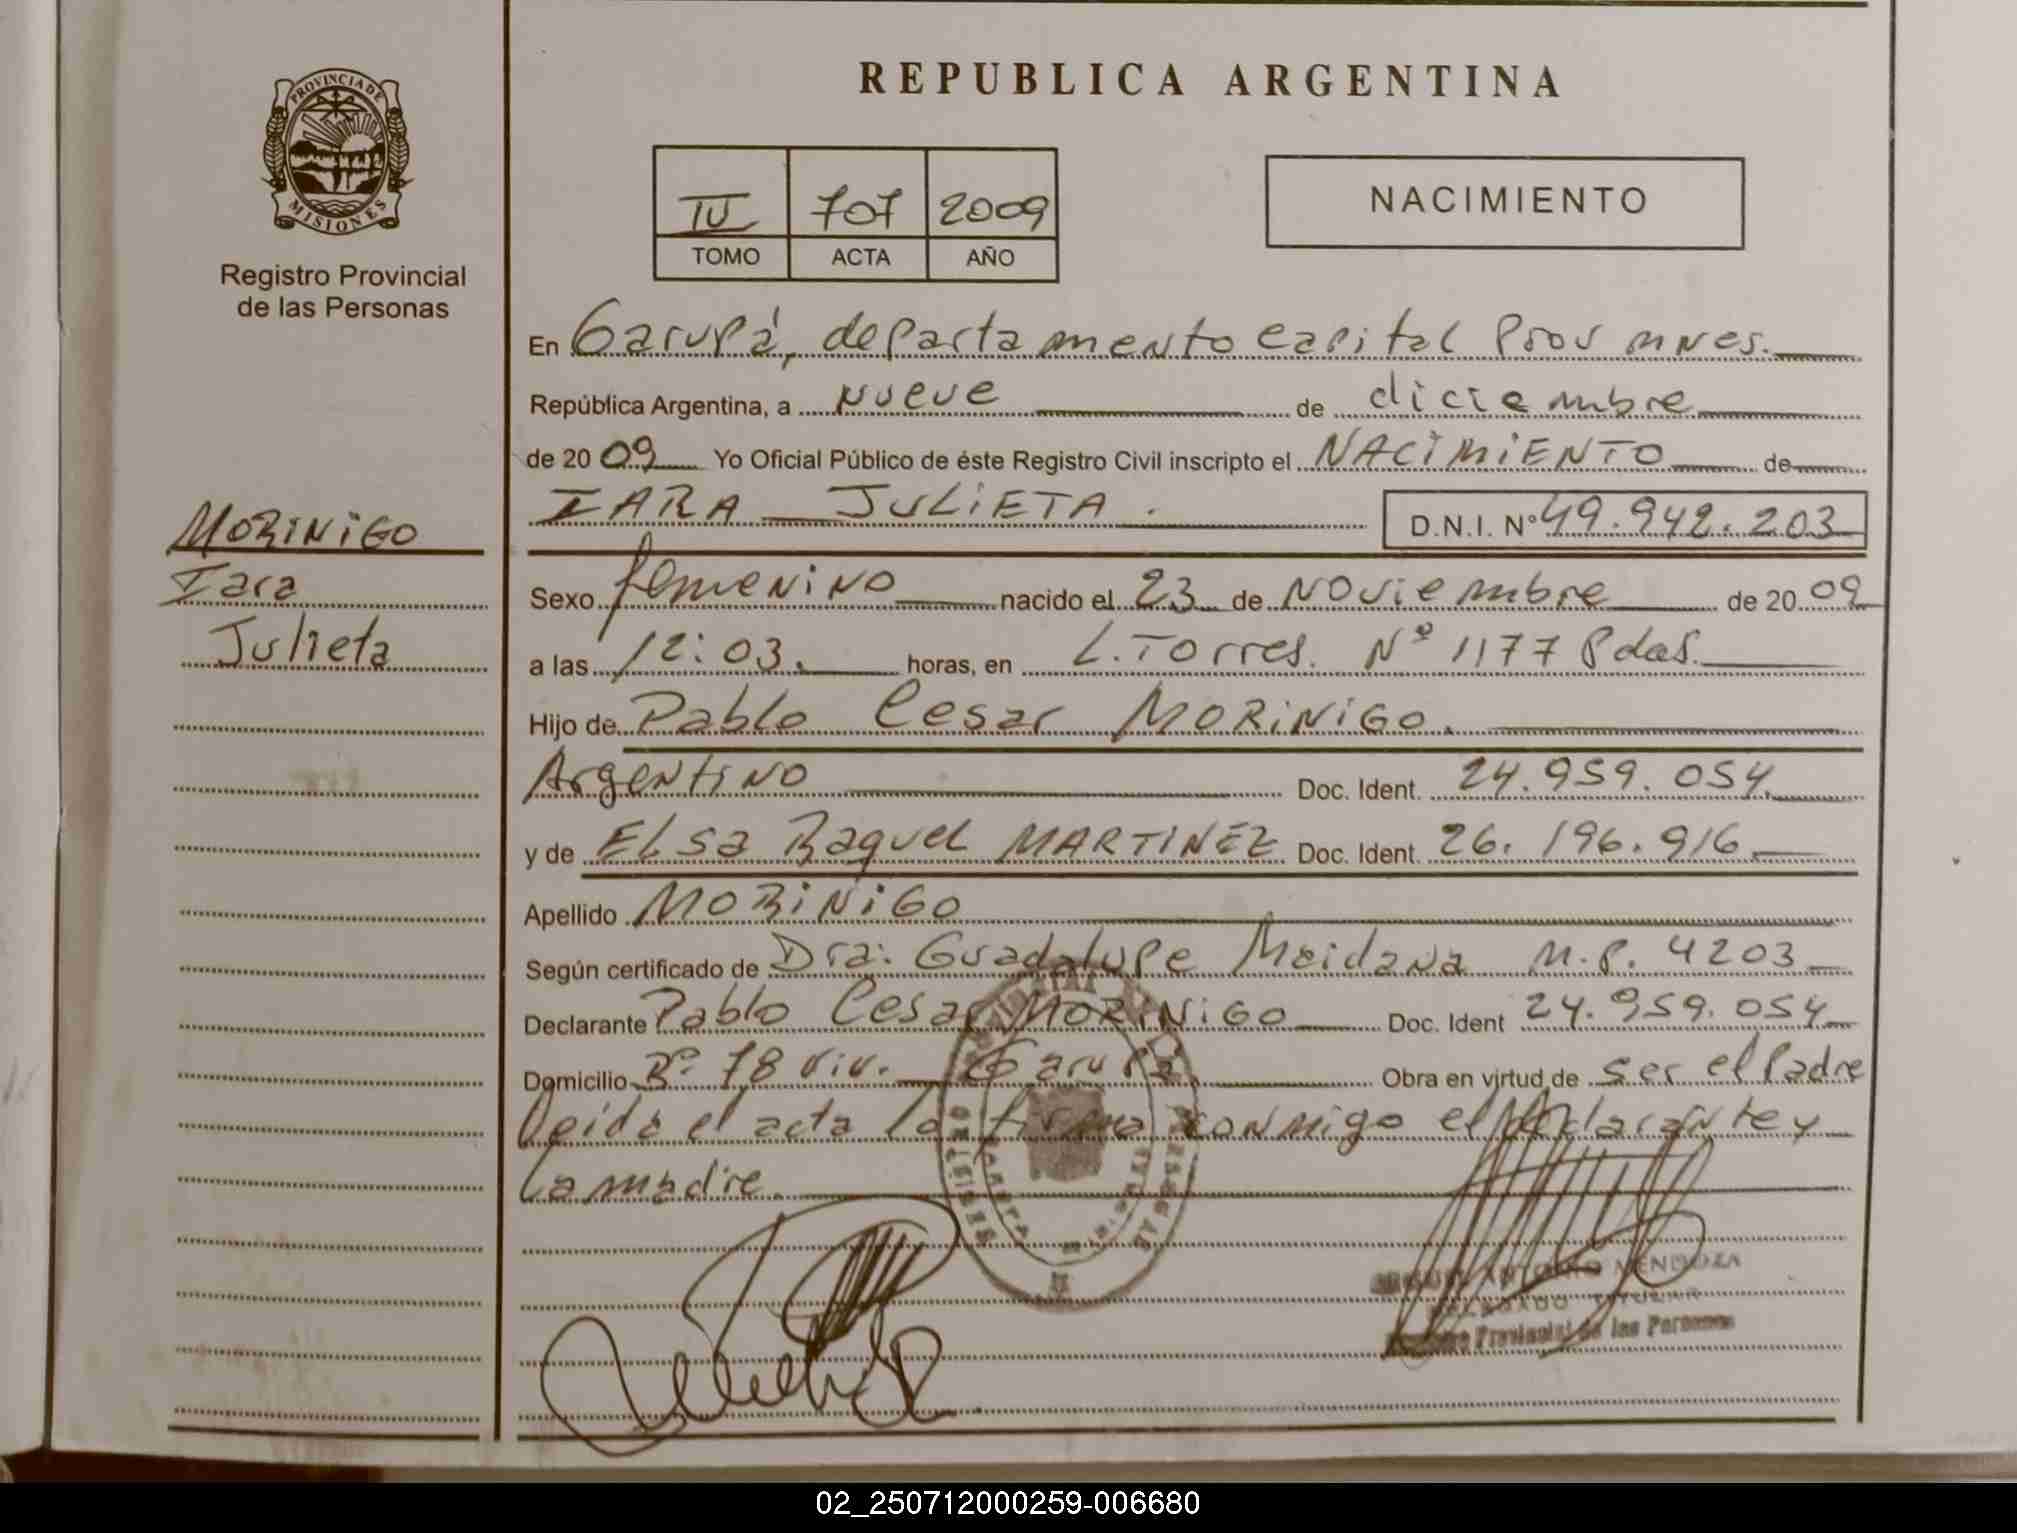 REPUBLICA ARGENTINA
PROVINCIA DE
MISIONES
Registro Provincial
de las Personas
IV 707 2009
TOMO ACTA AÑO
NACIMIENTO
En Garupá, departamento capital Prov mnes.
República Argentina, a nueve de diciembre
de 2009 Yo Oficial Público de éste Registro Civil inscripto el NACIMIENTO de
IARA JULIETA. D.N.I. Nº 49.942.203
MORINIGO
Iara
Julieta
Sexo femenino nacido el 23 de noviembre de 2009
a las 12:03. horas, en L. Torres. Nº 1177 Pdas.
Hijo de Pablo Cesar MORINIGO.
Argentino Doc. Ident. 24.959.054
y de Elsa Raquel MARTINEZ Doc. Ident. 26.196.916
Apellido MORINIGO
Según certificado de Dra: Guadalupe Meidana M.P. 4203
Declarante Pablo Cesar MORINIGO Doc. Ident 24.959.054
Domicilio Bº 78 viv. Garupá Obra en virtud de ser el Padre
Leida el acta la firma conmigo el declarante y
la madre.
MIGUEL ANTONIO MENDOZA
DELEGADO TITULAR
Registro Provincial de las Personas
02_250712000259-006680